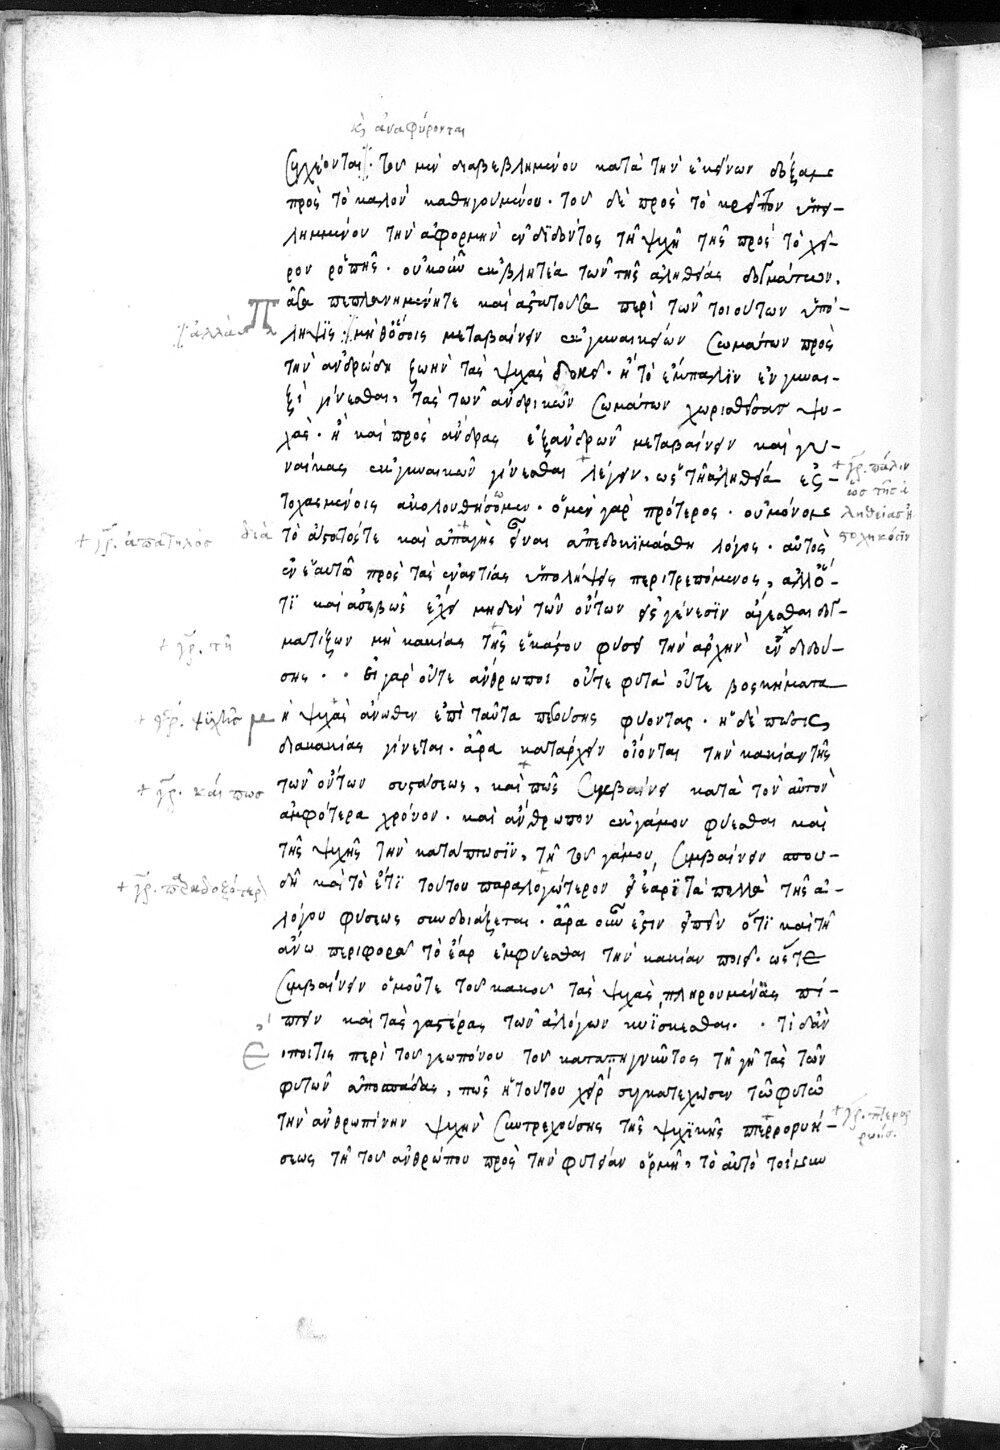 κ(αὶ) ἀναφύρονται
συγχέονται· τοῦ μὲν διαβεβλημένου κατὰ τὴν ἐκείνων δόξαν
πρὸς τὸ καλὸν καθηγουμένου· τοῦ δὲ πρὸς τὸ κρεῖττον ὑπει-
λημμένου τὴν ἀφορμὴν ἐνδιδόντος τῇ ψυχῇ τῆς πρὸς τὸ χεῖ-
ρον ῥοπῆς· οὐκοῦν ἐκβλητέα τῶν τῆς ἀληθείας δογμάτων,
πᾶσα πεπλανημένη τε καὶ ἀστατοῦσα περὶ τῶν τοιούτων ὑπό-
ἀλλὰ
ληψις· μὴ δ' ὅσοις μεταβαίνειν ἐκ γυναικείων σωμάτων πρὸς
τὴν ἀνδρώδη ζωὴν τὰς ψυχὰς δοκεῖ· ἢ τὸ ἔμπαλιν ἐν γυναι-
ξὶ γίνεσθαι, τὰς τῶν ἀνδρικῶν σωμάτων χωρισθείσας ψυ-
χάς· ἢ καὶ πρὸς ἄνδρας ἐξ ἀνδρῶν μεταβαίνειν καὶ γυ-
ναῖκας ἐκ γυναικῶν γίνεσθαι λέγειν, ὡς τῇ ἀληθείᾳ ἐσ-
+ γρ. πάλιν
ὡσ τῆς ἀ
ληθείασ ἠ
στοχηκόσιν
τοχασμένοις ἀκολουθήσωμεν· ὁ μὲν γὰρ πρότερος· οὐ μόνον
+ γρ. ἀπατηλὸσ διὰ
τὸ ἄστατός τε καὶ ἀπαγὴς εἶναι ἀπεδοκιμάσθη λόγος· αὐτὸς
ἐν ἑαυτῷ πρὸς τὰς ἐναντίας ὑπολήψεις περιτρεπόμενος, ἀλλ' ὅ-
τι καὶ ἀσεβῶς ἔχει μηδὲν τῶν ὄντων εἰς γένεσιν ἄγεσθαι δογ-
ματίζων μὴ κακίας τῆς ἑκάστου φύσει τὴν ἀρχὴν ἐνδιδού-
+ γρ. τῇ
σης· εἰ γὰρ οὔτε ἄνθρωποι οὔτε φυτὰ οὔτε βοσκήματα
+ γρ. ψυχῆσ
μὴ ψυχᾶς ἄνωθεν ἐπὶ ταῦτα πεσούσης φύονται· ἡ δὲ πτῶσις
διὰ κακίας γίνεται· ἄρα κατάρχειν οἴονται τὴν κακίαν τῆς
τῶν ὄντων συστάσεως, καὶ πῶς συμβαίνει κατὰ τὸν αὐτὸν
+ γρ. καί πωσ
ἀμφότερα χρόνον· καὶ ἄνθρωπον ἐκ γάμου φύεσθαι καὶ
τῆς ψυχῆς τὴν κατάπτωσιν, τῇ τοῦ γάμου, συμβαίνειν σπου-
δῇ· καὶ τὸ ἔτι τούτου παραλογώτερον εἰ ἔαρι τὰ πολλὰ τῆς ἀ-
+ γρ. παραδοξότερ(ον)
λόγου φύσεως συνδυάζεται· ἄρα οὖν ἔστιν εἰπεῖν ὅτι καὶ τῇ
ἄνω περιφορᾷ τὸ ἔαρ ἐμφύεσθαι τὴν κακίαν ποιεῖ· ὥστε
συμβαίνειν ὁμοῦ τε τοῦ κακοῦ τὰς ψυχὰς πληρουμένας πί-
πτειν καὶ τὰς γαστέρας τῶν ἀλόγων κυΐσκεσθαι· τί δ' ἂν
εἴποι τις περὶ τοῦ γεωπόνου τοῦ καταπηγνύντος τῇ γῇ τὰς τῶν
φυτῶν ἀποσπάδας, πῶς ἡ τούτου χεὶρ συγκατέχωσεν τῷ φυτῷ
τὴν ἀνθρωπίνην ψυχὴν συντρεχούσης τῆς ψυχικῆς πτερρορυή-
+ γρ. πτερορ
ρυΐσ.
σεως τῇ τοῦ ἀνθρώπου πρὸς τὴν φυτείαν ὁρμῇ, τὸ αὐτὸ τοίνυν